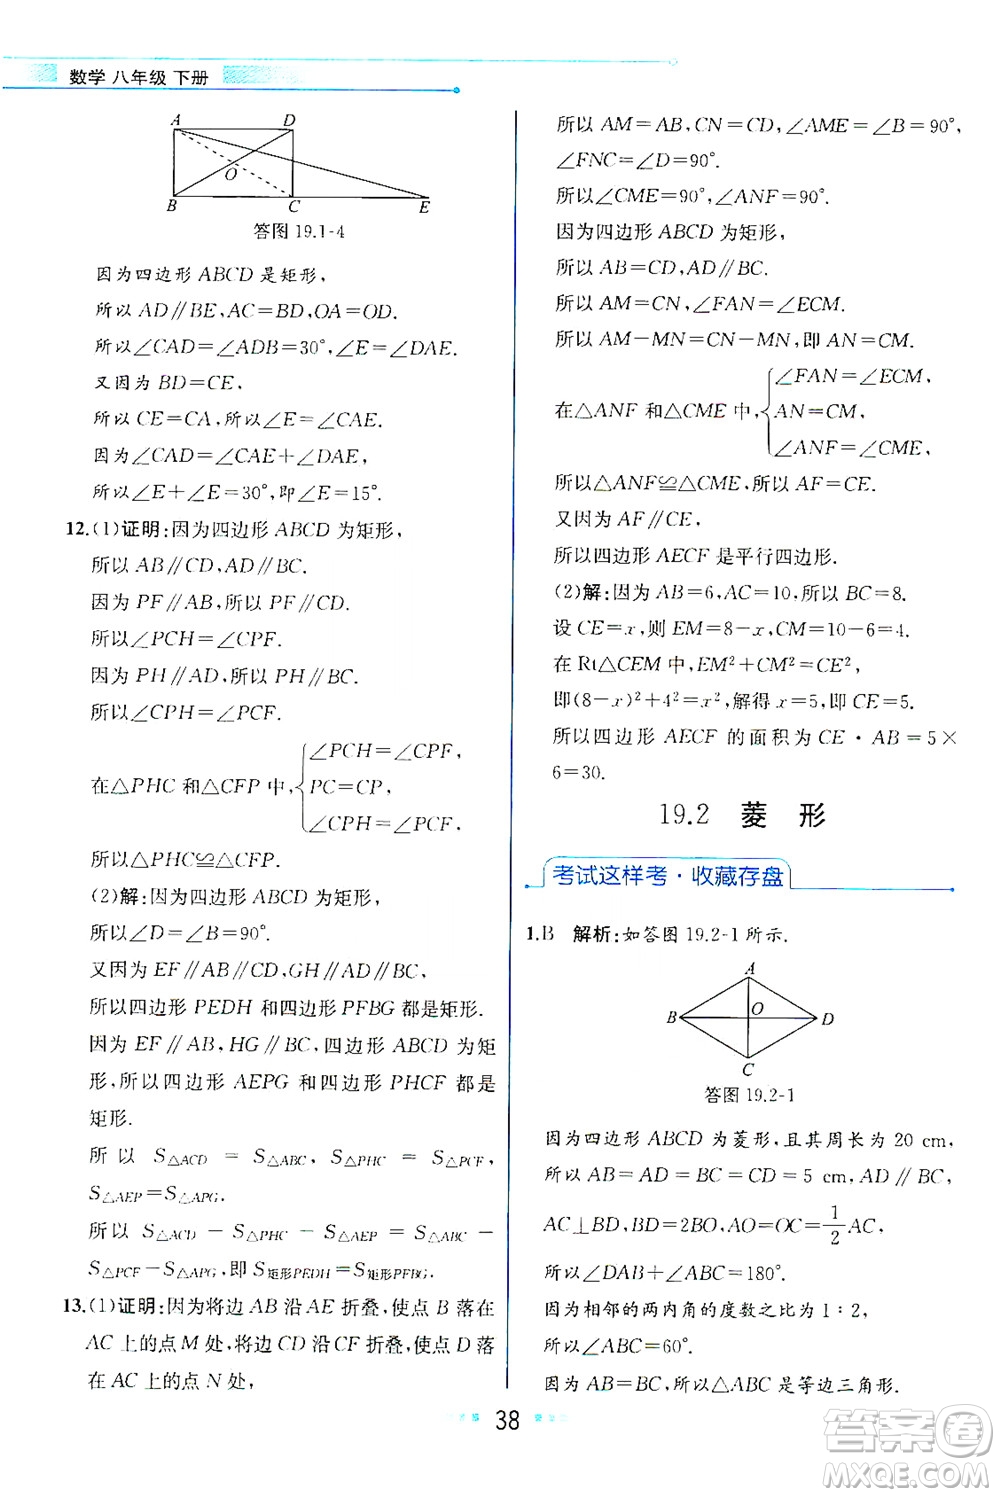 数学 八年级 下册
A
D
O
B
C
E
答图 19.1-4
因为四边形 ABCD 是矩形,
所以 AD∥BE,AC=BD,OA=OD.
所以∠CAD=∠ADB=30°,∠E=∠DAE.
又因为 BD=CE,
所以 CE=CA,所以∠E=∠CAE.
因为∠CAD=∠CAE+∠DAE,
所以∠E+∠E=30°,即∠E=15°.
12.(1)证明:因为四边形 ABCD 为矩形,
所以 AB∥CD,AD∥BC.
因为 PF∥AB,所以 PF∥CD.
所以∠PCH=∠CPF.
因为 PH∥AD,所以 PH∥BC.
所以∠CPH=∠PCF.
在△PHC 和△CFP 中,{∠PCH=∠CPF,
PC=CP,
∠CPH=∠PCF,
所以△PHC≌△CFP.
(2)解:因为四边形 ABCD 为矩形,
所以∠D=∠B=90°.
又因为 EF∥AB∥CD,GH∥AD∥BC,
所以四边形 PEDH 和四边形 PFBG 都是矩形.
因为 EF∥AB,HG∥BC,四边形 ABCD 为矩
形,所以四边形 AEPG 和四边形 PHCF 都是
矩形.
所以 S△ACD = S△ABC, S△PHC = S△PCF,
S△AEP=S△APG.
所以 S△ACD − S△PHC − S△AEP = S△ABC −
S△PCF−S△APG,即 S矩形PEDH=S矩形PFBG.
13.(1)证明:因为将边 AB 沿 AE 折叠,使点 B 落在
AC 上的点 M 处,将边 CD 沿 CF 折叠,使点 D 落
在 AC 上的点 N 处,
所以 AM=AB,CN=CD,∠AME=∠B=90°,
∠FNC=∠D=90°.
所以∠CME=90°,∠ANF=90°.
因为四边形 ABCD 为矩形,
所以 AB=CD,AD∥BC.
所以 AM=CN,∠FAN=∠ECM.
所以 AM−MN=CN−MN,即 AN=CM.
在△ANF 和△CME 中,{∠FAN=∠ECM,
AN=CM,
∠ANF=∠CME,
所以△ANF≌△CME,所以 AF=CE.
又因为 AF∥CE,
所以四边形 AECF 是平行四边形.
(2)解:因为 AB=6,AC=10,所以 BC=8.
设 CE=x,则 EM=8−x,CM=10−6=4.
在 Rt△CEM 中,EM²+CM²=CE²,
即(8−x)²+4²=x²,解得 x=5,即 CE=5.
所以四边形 AECF 的面积为 CE·AB=5×
6=30.
19.2 菱 形
考试这样考·收藏存盘
1.B 解析:如答图 19.2-1 所示.
A
O
B
D
C
答图 19.2-1
因为四边形 ABCD 为菱形,且其周长为 20 cm,
所以 AB = AD = BC = CD = 5 cm, AD∥BC,
AC⊥BD,BD=2BO,AO=OC=1/2 AC,
所以∠DAB+∠ABC=180°.
因为相邻的两内角的度数之比为 1∶2,
所以∠ABC=60°.
因为 AB=BC,所以△ABC 是等边三角形.
38
答案圈
MXQE.COM